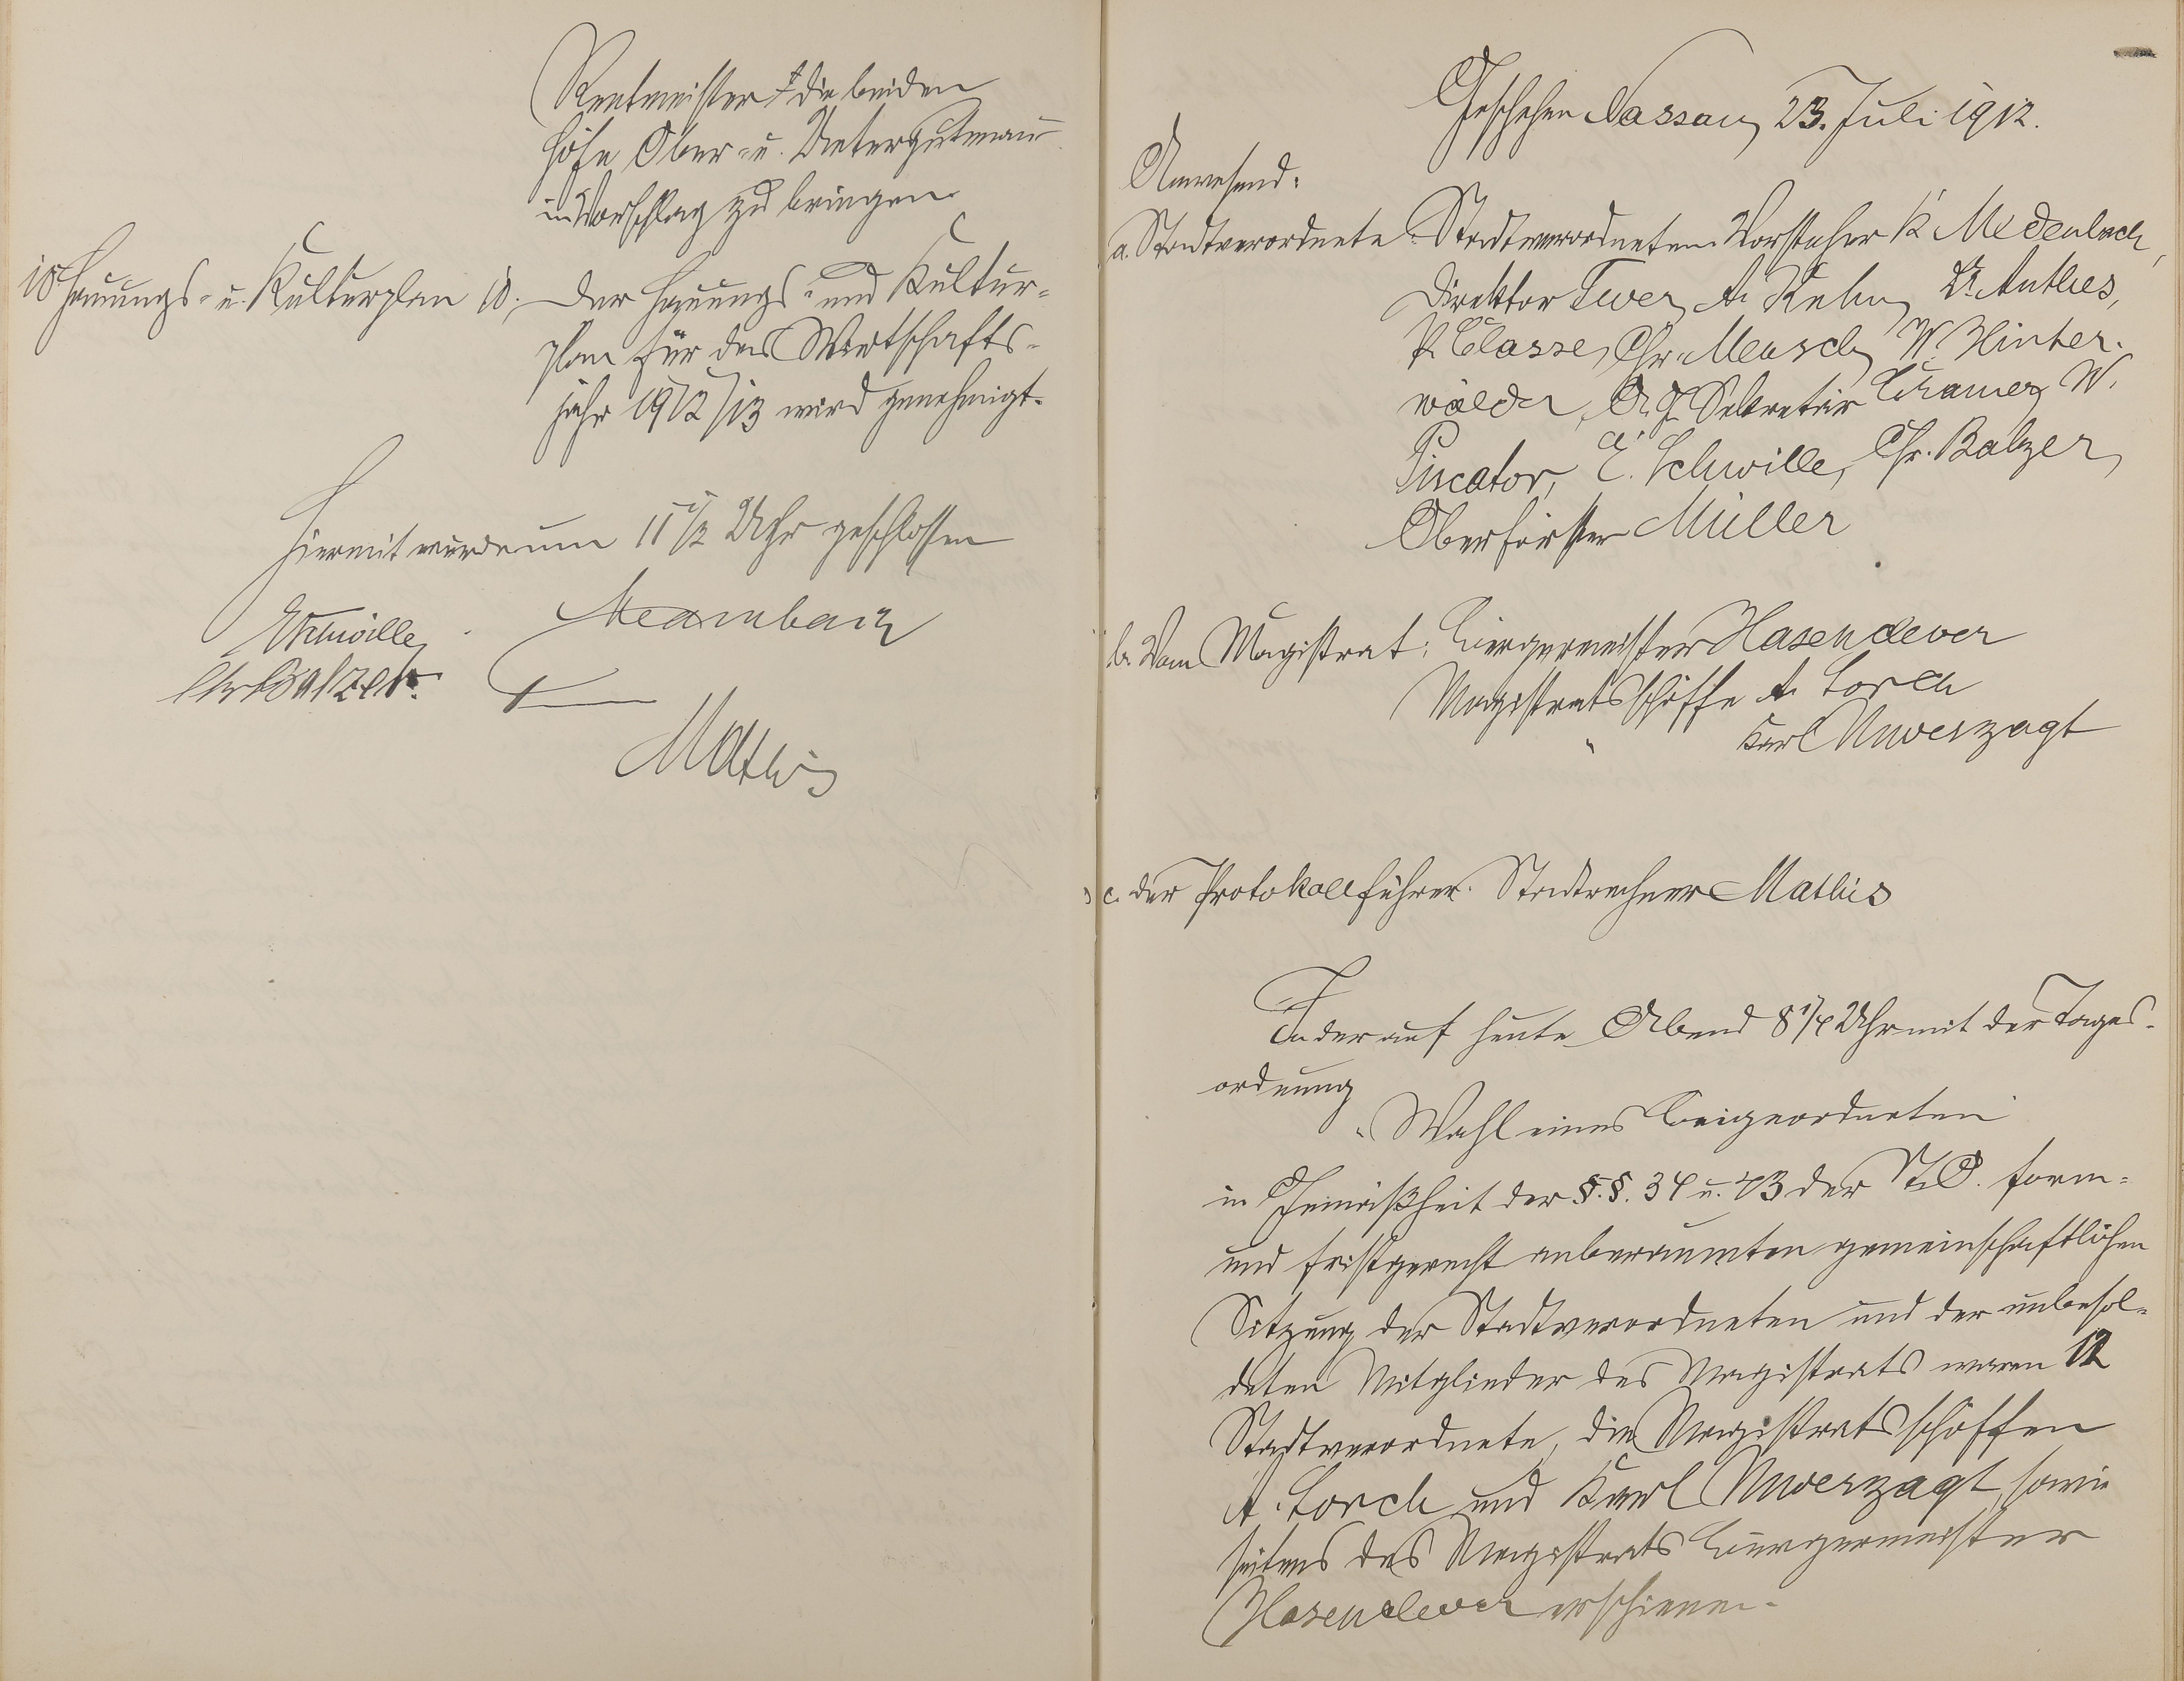 Rentmeister & die beiden
Höfe Ober- u. Untergutenau
in Vorschlag zu bringen.
10 Hauungs- u. Kulturplan
10. Der Hauungs- und Kultur-
plan für das Wirtschafts-
jahr 1912/13 wird genehmigt.
Hiermit wurde um 11 1/2 Uhr geschlossen
Medenbach
ESchwille
Chr Balzer.
Mathis
Geschehen Nassau, 23. Juli 1912.
Anwesend:
a. Stadtverordnete: Stadtverordneten-Vorsteher K Medenbach,
Direktor Twer, A. Kuhn, Dr. Anthes,
P. Classe, Chr. Meusch, W. Hinter-
wälder, A. G. Sekretär Cramer, W.
Piscator, E. Schwille, Chr. Balzer,
Oberförster Müller
b. Vom Magistrat: Bürgermeister Hasenclever
Magistratsschöffe A. Lorch
" Karl Unverzagt
c. der Protokollführer: Stadtrechner Mathis
In der auf heute Abend 8 1/4 Uhr mit der Tages-
ordnung
"Wahl eines Beigeordneten"
in Gemäßheit der §.§. 34 u. 43 der St.O. form-
und fristgerecht anberaumten gemeinschaftlichen
Sitzung der Stadtverordneten und der unbesol-
deten Mitglieder des Magistrats waren 12
Stadtverordnete, die Magistratsschöffen
A. Lorch und Karl Unverzagt, sowie
seitens des Magistrats Bürgermeister
Hasenclever erschienen.